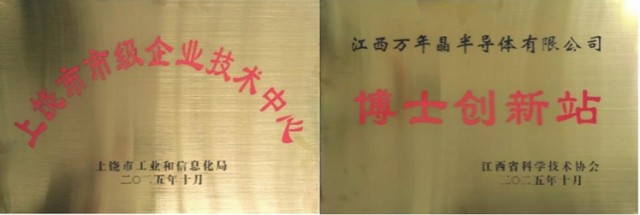 上饶市市级企业技术中心
上饶市工业和信息化局
二〇二五年十月
江西万年晶半导体有限公司
博士创新站
江西省科学技术协会
二〇二五年十月